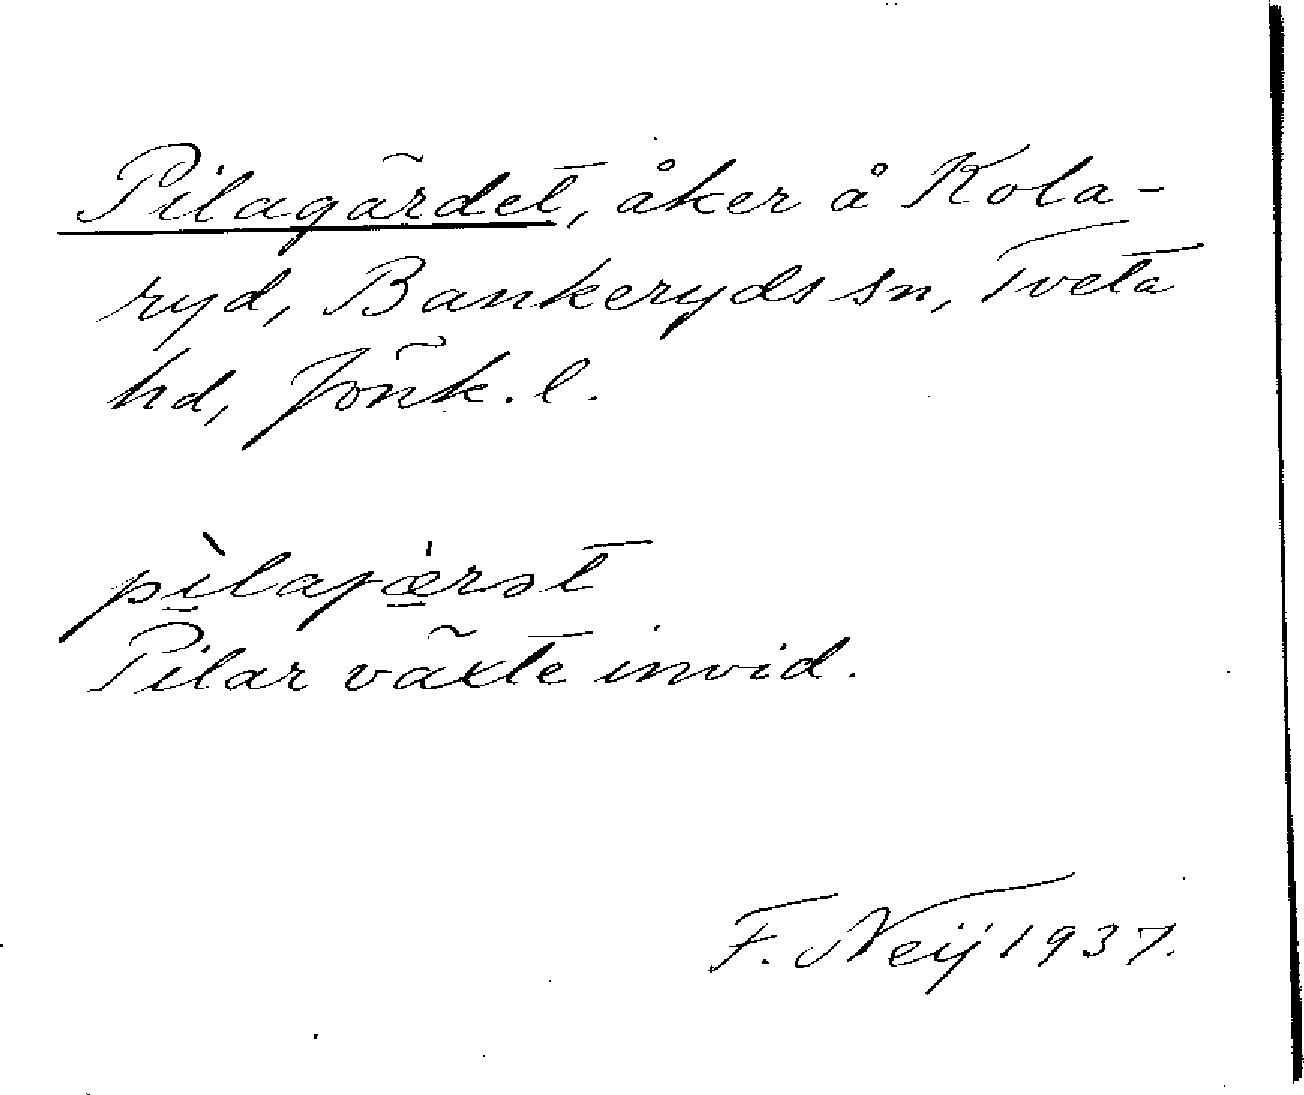 Pilagärdet, åker å Kola-
ryd, Bankeryds sn, Tveta
hd, Jönk. l.
pìlajæ̀rət
Pilar växte invid.
F. Neij 1937.